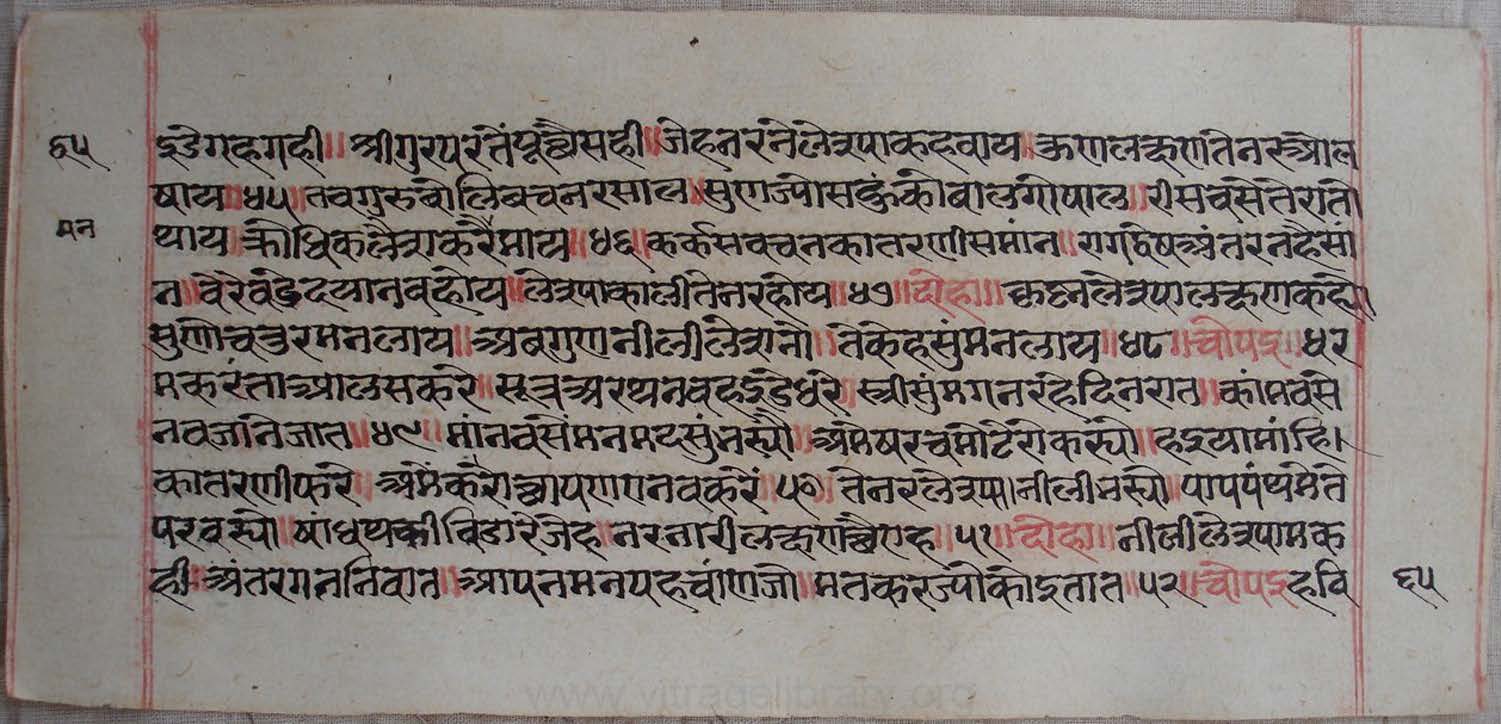 ६५
मन
इडेगहगही॥ श्रीगुरपरतेंपूछैसही॥ जेहनरनेलेश्याकहवाय॥ क्रणलक्षणतेनरओल
षाय॥४५॥तवगुरुबोलिवचनरसाल॥सुणज्योसहुंकोबालगोपाल॥रीसवसेतेरातो
थाय॥क्रोधिकलेशकरैमाय॥४६॥कर्कसवचनकातरणीसमांन॥रागद्वेषअंतरनहैसां
न॥वेरेवंडेदयानवहोय॥लेश्याकालीतेनरहोय॥४७॥दोहा॥कृष्नलेश्यालक्षणकह्या
सुणोचतुरमनलाय॥अवगुणनीलीलेशनो॥तेकेहसुंमनलाय॥४८॥चोपइ॥धर
मकरंताआलसकरे॥सूत्रअरथनवहइडेधरे॥स्त्रीसुंमगनरहेदिनरात॥कांमवसे
नवजानेजात॥४९॥मांनवसेंमनमदसुंभस्यौ॥ अंमेषरचमोटेरोकस्यो॥हइयामांहि।
कातरणीफरे॥ अंमेकरोछापणगनवकरें॥५०॥ तेनरलेश्यानीलीभस्यो॥पापपंथमेते
परवस्यो॥षांधथकीविडारेजेह॥नरनारीलक्षणछैएह॥५१॥दोहा॥नीलीलेश्यामक
ही॥अंतरगतनिवात॥आपनमनपहचांणजो॥मतकरज्योकोइतात॥५२॥चोपइ॥हवि
६५
www.vitragelibrary.org